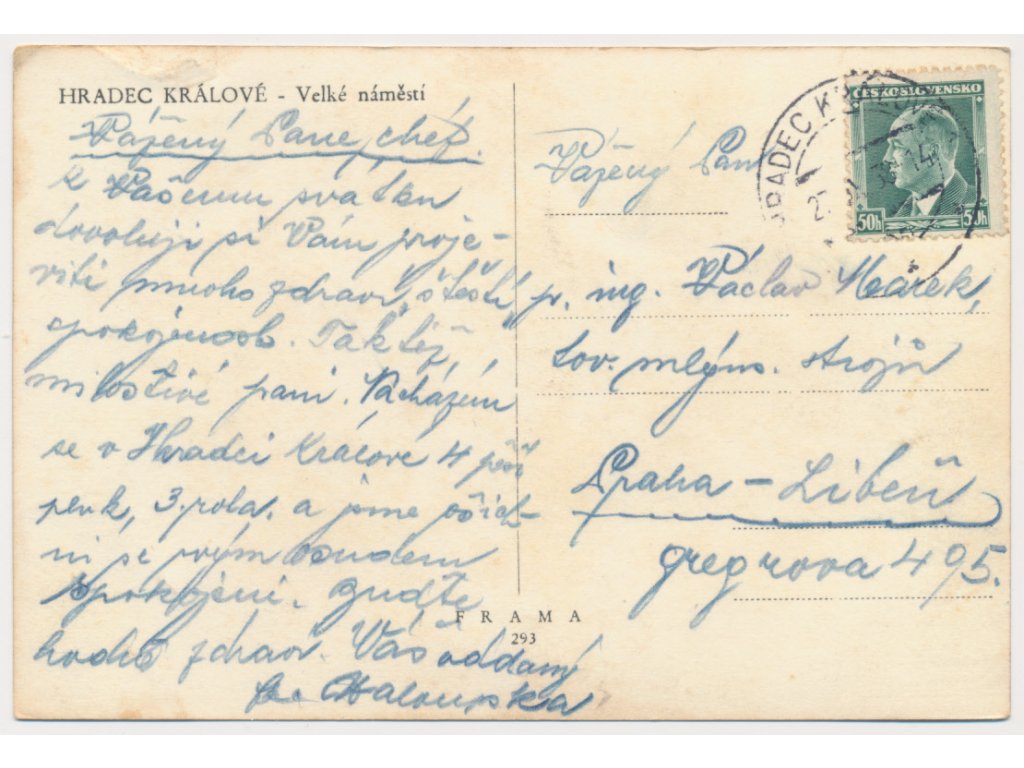 HRADEC KRÁLOVÉ - Velké náměstí
Vážený Pane chéf.
K Vašemu svátku
dovoluji si Vám proje-
viti mnoho zdraví, štěstí,
spokojenosti. Taktéž
milostivé paní. Nacházím
se v Hradci Králové 4 pěší
pluk, 3. rota. a jsme všich-
ni se svým osudem
spokojeni. Buďte
hodně zdráv. Váš oddaný
Haloupka
Vážený Pan
p. ing. Václav Marek,
tov. mlýns. strojů
Praha - Libeň
Gregrova 495.
FRAMA
293
ČESKOSLOVENSKO
50h 50h
HRADEC KRÁLOVÉ